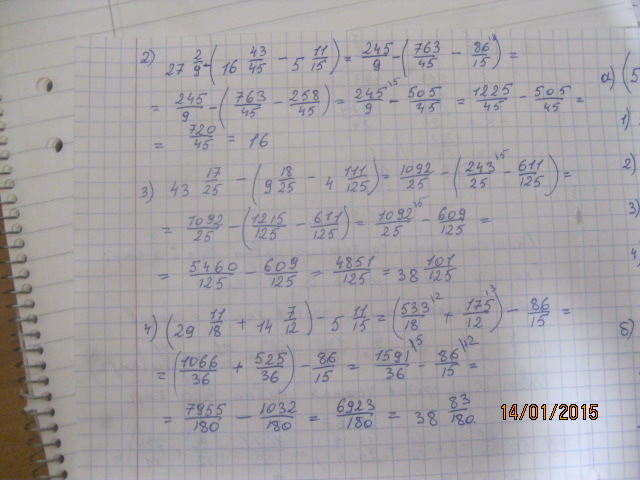 2) 27 2/9 - (16 43/45 - 5 11/15) = 245/9 - (763/45 - 86/15) =
= 245/9 - (763/45 - 258/45) = 245/9 \5 - 505/45 = 1225/45 - 505/45 =
= 720/45 = 16
3) 43 17/25 - (9 18/25 - 4 111/125) = 1092/25 - (243/25 \5 - 611/125) =
= 1092/25 - (1215/125 - 611/125) = 1092/25 \5 - 609/125 =
= 5460/125 - 609/125 = 4851/125 = 38 101/125
4) (29 11/18 + 14 7/12) - 5 11/15 = (533/18 \2 + 175/12 \3) - 86/15 =
= (1066/36 + 525/36) - 86/15 = 1591/36 \5 - 86/15 \12 =
= 7965/180 - 1032/180 = 6923/180 = 38 83/180
а) (5
1)
2)
3)
4)
б)
14/01/2015